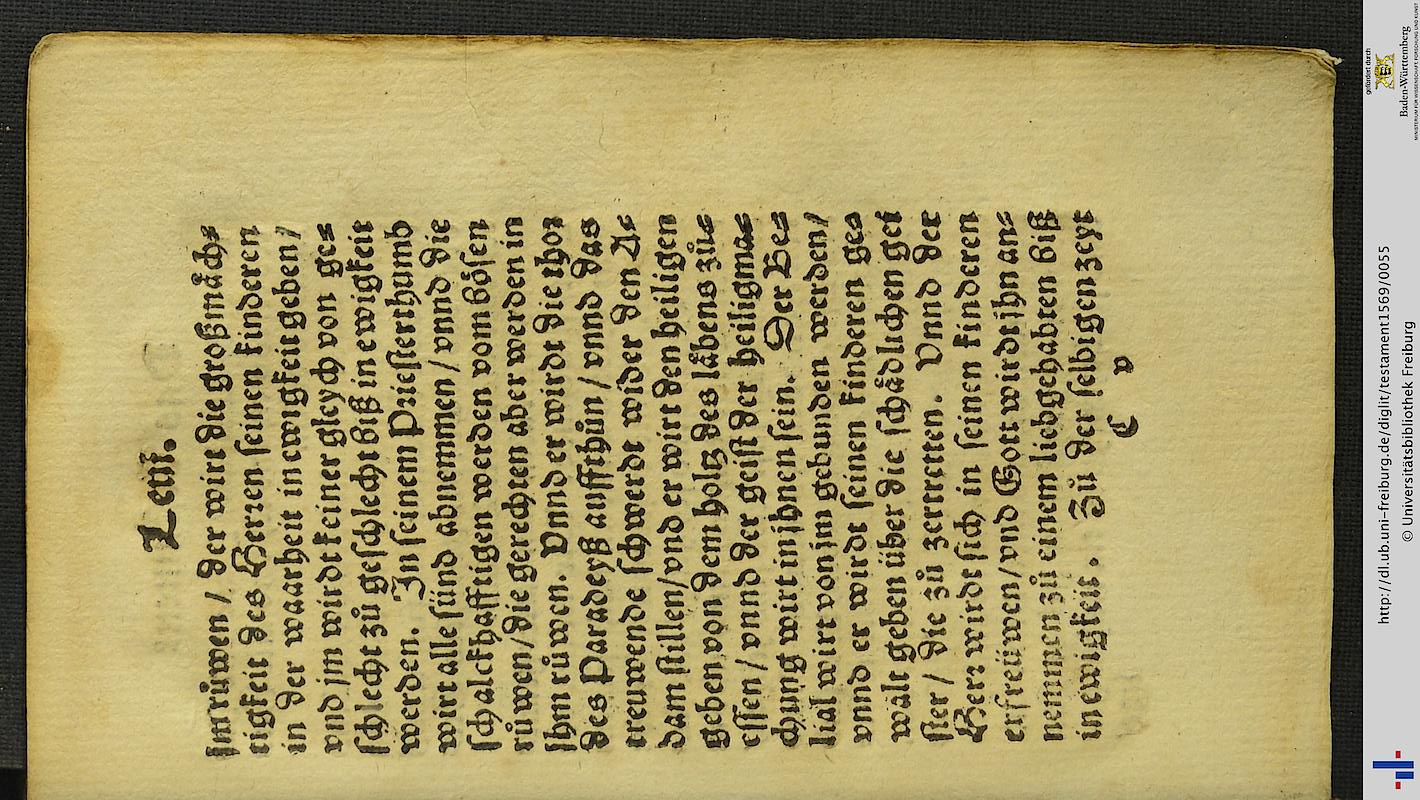 Leui.
jm růwen / der wirt die großmåch⸗
tigkeit des Herren seinen kinderen
in der waarheit in ewigkeit geben /
vnd jm wirdt keiner gleych von ge⸗
schlecht zů geschlecht biß in ewigkeit
werden. In seinem Priesterthumb
wirt alle sünd abnemmen / vnnd die
schalckhafftigen werden vom bösen
růwen / die gerechten aber werden in
jhm růwen. Vnnd er wirdt die thor
des Paradeyß auffthůn / vnnd das
treuwende schwerdt wider den A⸗
dam stillen / vnd er wirt den heiligen
geben von dem holtz des låbens zů⸗
essen / vnnd der geist der heiligma⸗
chung wirt in jhnen sein. Der Be⸗
lial wirt von jm gebunden werden /
vnnd er wirdt seinen kinderen ge⸗
walt geben über die schådlichen gei
ster / die zů zertretten. Vnnd der
Herr wirdt sich in seinen kinderen
erfreüwen / vnd Gott wirdt jhn an⸗
nemmen zů einem liebgehabten biß
in ewigkeit. Zů der selbigen zeyt
C v
gefördert durch
Baden-Württemberg
MINISTERIUM FÜR WISSENSCHAFT, FORSCHUNG UND KUNST
http://dl.ub.uni-freiburg.de/diglit/testament1569/0055
© Universitätsbibliothek Freiburg